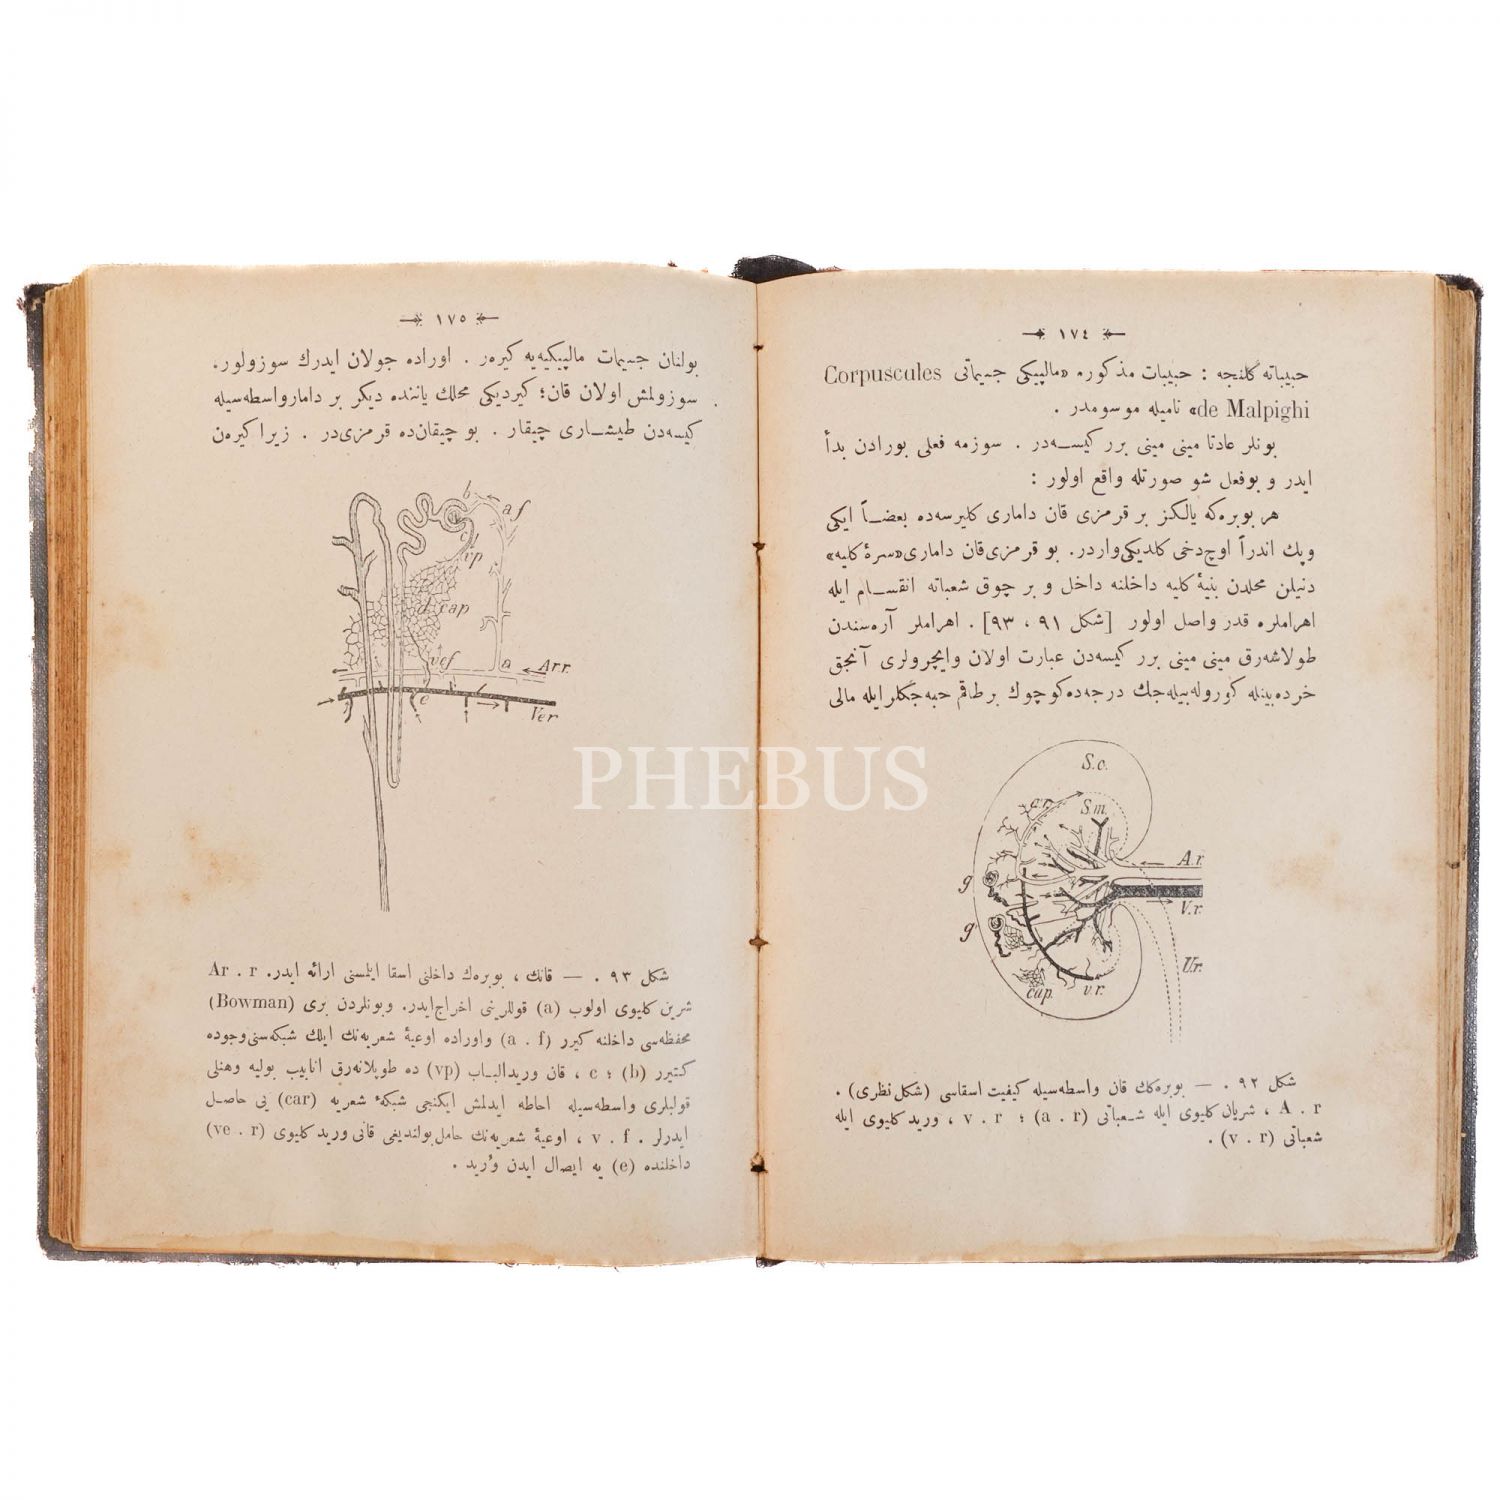 ١٧٤
حبیباته گلنجه : حبیبات مذكوره «مالپیكی جسیماتی Corpuscules
de Malpighi» نامیله موسومدر .
بونلر عادتا مینی مینی برر كیسه‌در . سوزمه فعلی بورادن بدأ
ایدر و بوفعل شو صورتله واقع اولور :
هر بوبره‌كه یالكز بر قرمزی قان داماری كلیرسه‌ده بعضاً ایكی
وپك اندراً اوچ دخی كلدیكی واردر. بو قرمزی قان داماری «سرۀ كلیه»
دنیلن محلدن بنیۀ كلیه داخلنه داخل و بر چوق شعباته انقسام ایله
اهراملره قدر واصل اولور [شكل ٩١ ، ٩٣] . اهراملر آره‌سندن
طولاشه‌رق مینی مینی برر كیسه‌دن عبارت اولان وایچرولری آنجق
خرده‌بینله كوروله‌بیله‌جك درجه‌ده كوچوك بر طاقم حبه‌جكلر ایله مالی
S.c.
a.r.
S.m.
A.r.
g
V.r.
g
U.r.
cap.
v.r.
شكل ٩٢ . — بوبره‌كك قان واسطه‌سیله كیفیت اسقاسی (شكل نظری) .
A . r ، شریان كلیوی ایله شعباتی (a . r) ؛ v . r ، ورید كلیوی ایله
شعباتی (v . r) .
١٧٥
بولنان جسیمات مالپیكیه‌یه كیرەر . اوراده جولان ایدرك سوزولور.
سوزولمش اولان قان؛ كیردیكی محلك یاننده دیكر بر دامار واسطه‌سیله
كیسه‌دن طیشاری چیقار . بو چیقان‌ده قرمزی‌در . زیرا كیره‌ن
b
a f
c
vp
d cap
vef
a
Arr.
e
Ver
شكل ٩٣ . — قانك ، بوبره‌ك داخلنی اسقا ایلمسنی ارائه ایدر. Ar . r
شرین كلیوی اولوب (a) قوللرینی اخراج ایدر. وبونلردن بری (Bowman)
محفظه‌سی داخلنه كیرر (a . f) واوراده اوعیۀ شعریه‌نك ایلك شبكه‌سنی وجوده
كتیرر (b) ؛ c ، قان وریدالباب (vp) ده طوپلانه‌رق انابیب بولیه وهنلی
قولبلری واسطه‌سیله احاطه ایدلمش ایكنجی شبكۀ شعریه (car) یی حاصل
ایدرلر . v . f ، اوعیۀ شعریه‌نك حامل بولندیغی قانی ورید كلیوی (ve . r)
داخلنده (e) یه ایصال ایدن ورید .
PHEBUS